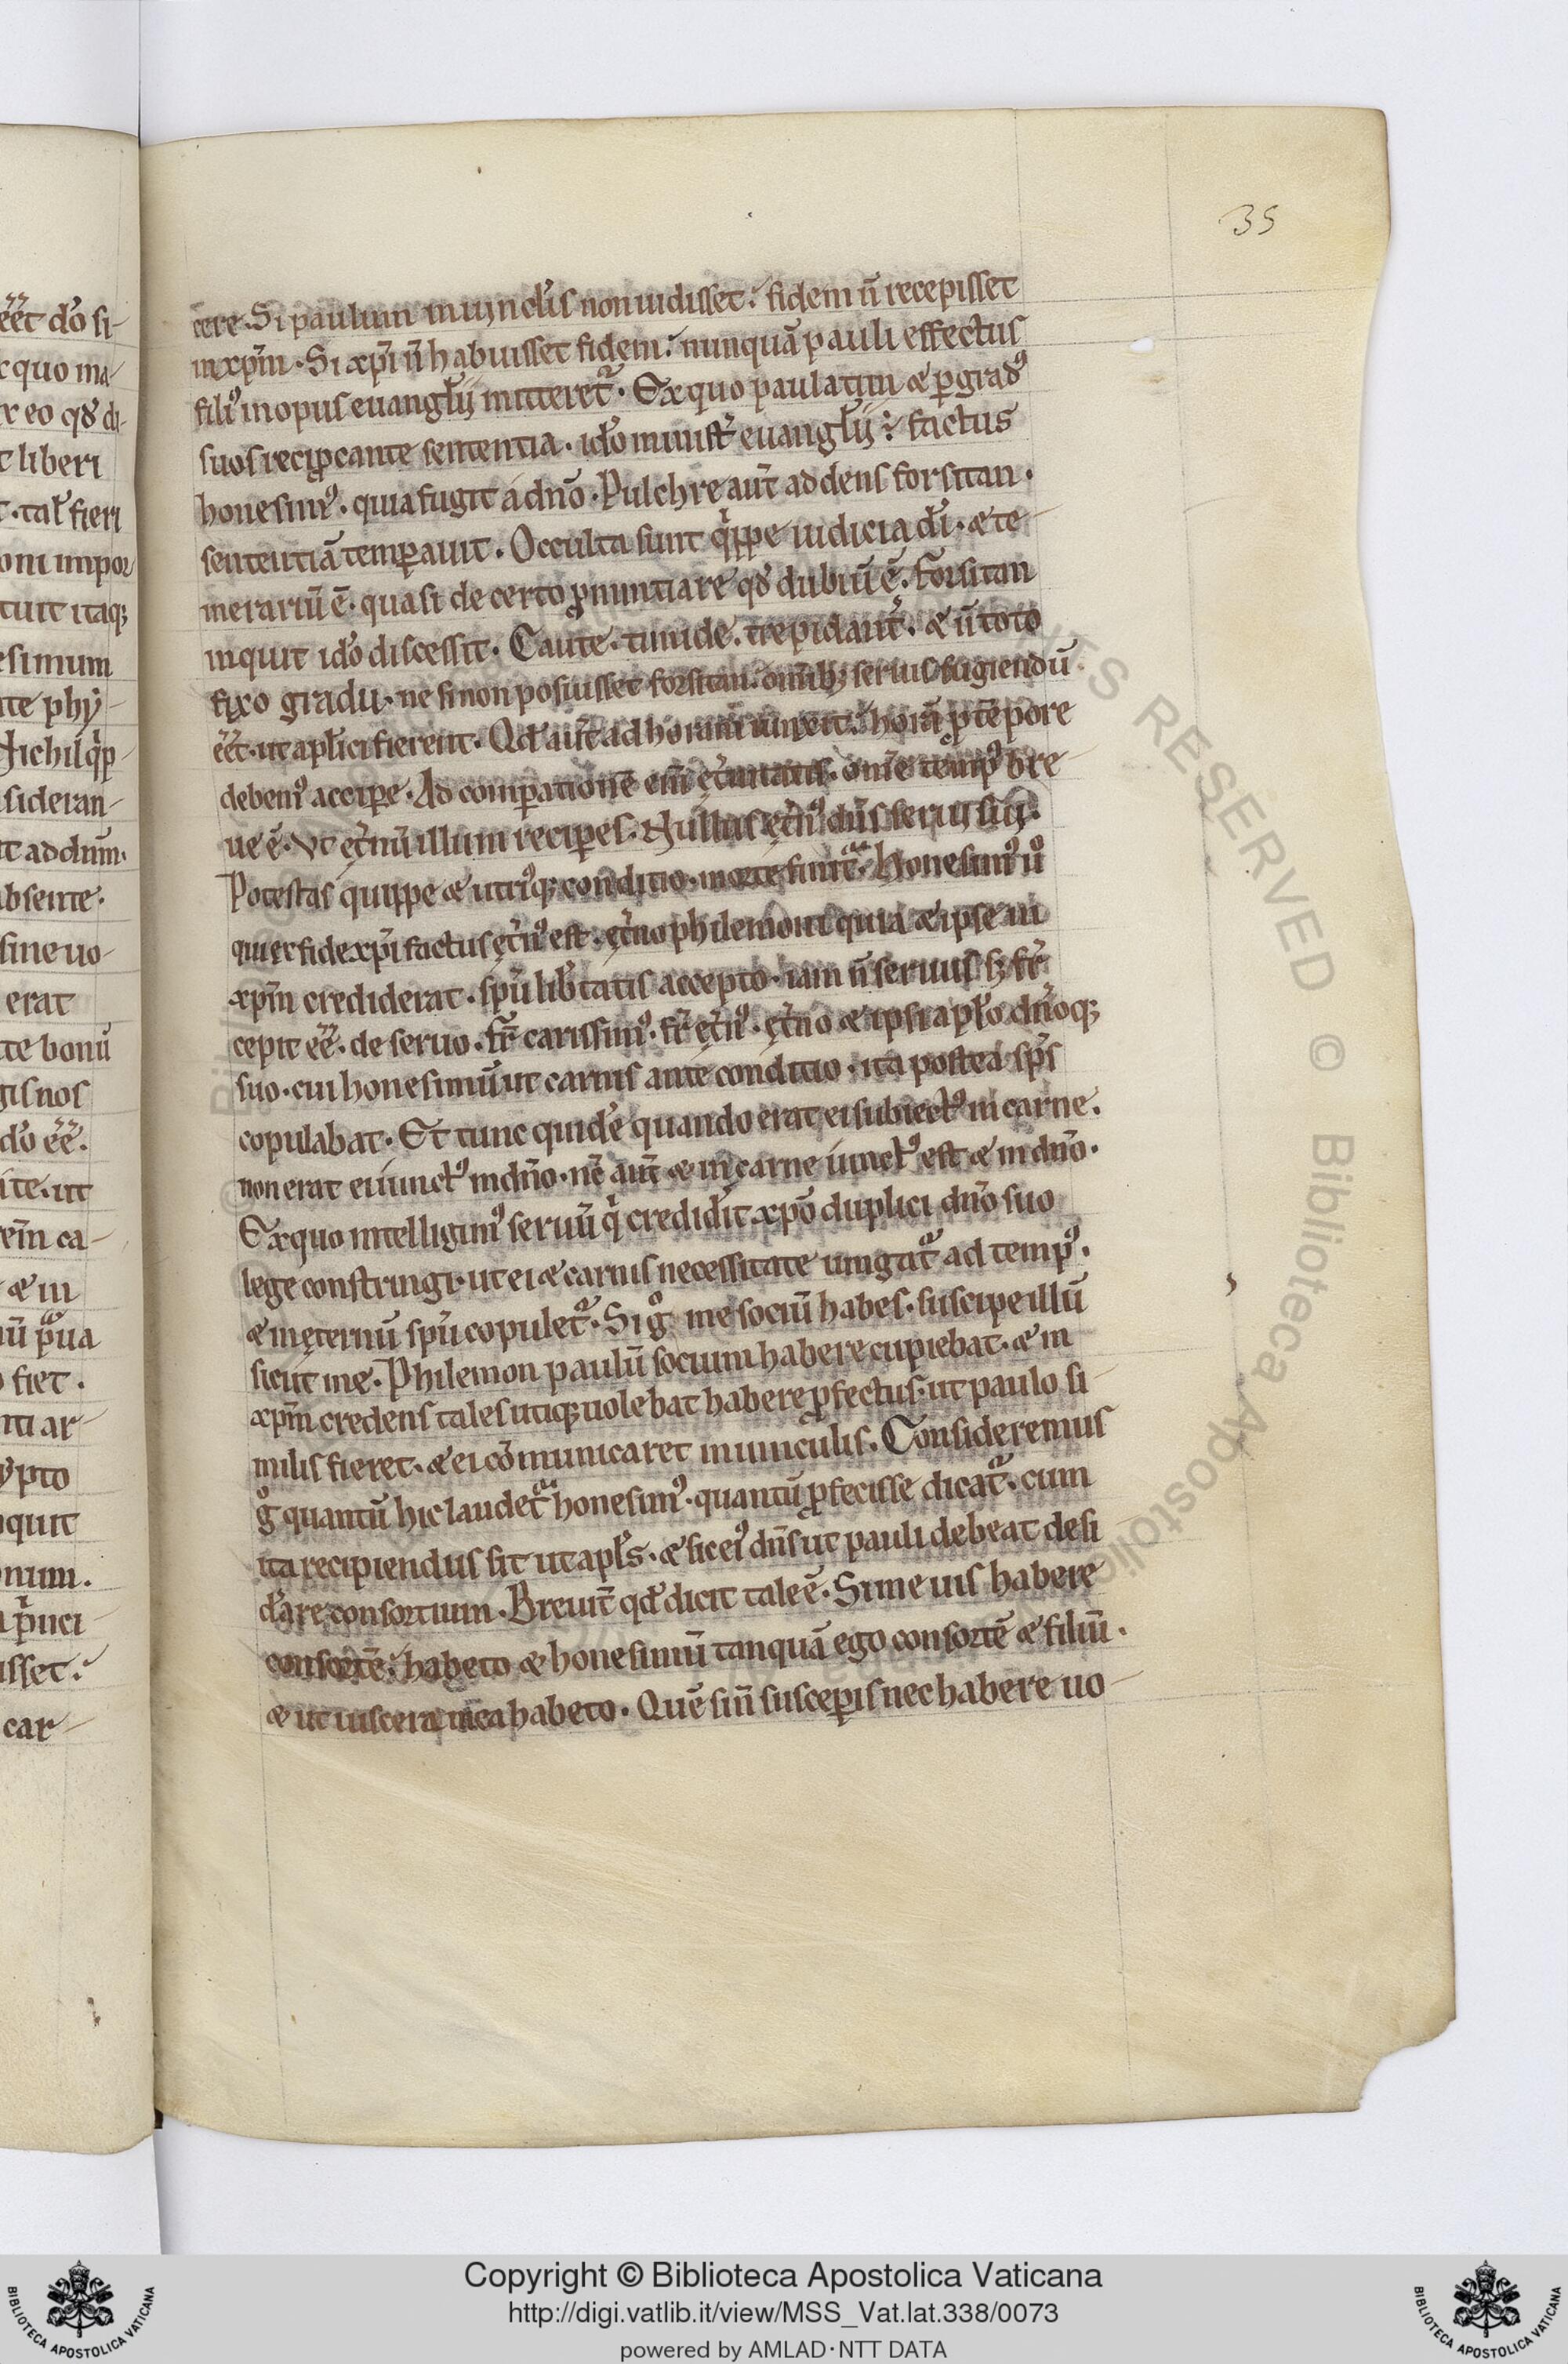 35
cere. Si paulum in uinclis non uidisset: fidem ñ recepisset
in xpm̄. Si xpi ñ habuisset fidem: nunquā pauli effectus
fili᾽ in opus euanglij mitteret᷑. Ex quo paulatim & p grad᾽
suos recipcante sententia. ido minist̄ euanglij: factus
honesim᾽. quia fugit a dn̄o. Pulchre aut̄ addens forsitan.
sententiā temꝑauit. Occulta sunt qippe iudicia di. & te-
merariū ē. quasi de certo ꝓnuntiare qd dubiū ē. Forsitan
inquit ido discessit. Caute. timide. trepidant̄. & ñ toto
fixo gradu. ne si non posuisset forsitan: omībꝫ seruis fugiendū
eēt. ut aplici fierent. Qd aut̄ ad horam iunxit: horā ꝓ tēpore
debem᾽ acciꝑe. Ad comꝑationē eni᷒ ęt̄nitatis. om̄e temp᾽ bre-
ue ē. Vt ęt̄nū illum reciꝑes. Nullus ęt̄n᾽ dn̄s serui sui.
Potestas quippe & utri᾽qꝫ conditio. morte finit᷑. Honesim᾽ u᾽
qui ex fide xpi factus ęt̄n᾽ est. ęt̄no philemoni quia & ipse in
xpm̄ crediderat. spū lib̄tatis accepto. iam ñ seruus sꝫ fr̄
cepit eē. de seruo. fr̄ carissim᾽. fr̄ ęt̄n᾽. ęt̄no & ipsi aplo dn̄oqꝫ
suo. cui honesimū ut carnis ante conditio. ita postea sps̄
copulabat. Et tunc quidē quando erat ei subiect᾽ in carne.
non erat ei iunct᾽ in dn̄o. nc̄ aut̄ & in carne iunct᾽ est & in dn̄o.
Ex quo intelligim᾽ seruū qi credidit xpō duplici dn̄o suo
lege constringi. ut ei & carnis necessitate iungat᷑ ad temp᾽.
& in ęternū spū copulet᷑. Si g᷒ me sociū habes. suscipe illū
sicut me. Philemon paulū socium habere cupiebat. & in
xpm̄ credens tales utiqꝫ uolebat habere ꝓfectus. ut paulo si-
milis fieret. & ei cōmunicaret in uinculis. Consideremus
g᷒ quantū hic laudet᷑ honesim᾽. quantū ꝓfecisse dicat᷑. cum
ita recipiendus sit ut apls. & sic ei᾽ dn̄s ut pauli debeat desi-
d̄are consortium. Breuit̄ qd dicit tale ē. Si me uis habere
consortē: habeto & honesimū tanquā ego consortē & filiū.
& ut uiscera mea habeto. Quē si ñ susceꝑis nec habere uo-
eēt do si-
x quo ma-
x eo qd di-
t liberi
t. tal fieri
oni impor
tuit itaqꝫ
esimum
te phy-
Nichil qip
sideran-
t ad dnm.
bsente.
sine uo-
erat
te bonū
gis nos
do eē.
ite. ut
ein ca-
& in
ū pua
fiet.
nti ar-
ypto
quit
num.
pnci-
sset:
car-
Copyright © Biblioteca Apostolica Vaticana
http://digi.vatlib.it/view/MSS_Vat.lat.338/0073
powered by AMLAD·NTT DATA
BIBLIOTECA APOSTOLICA VATICANA
BIBLIOTECA APOSTOLICA VATICANA